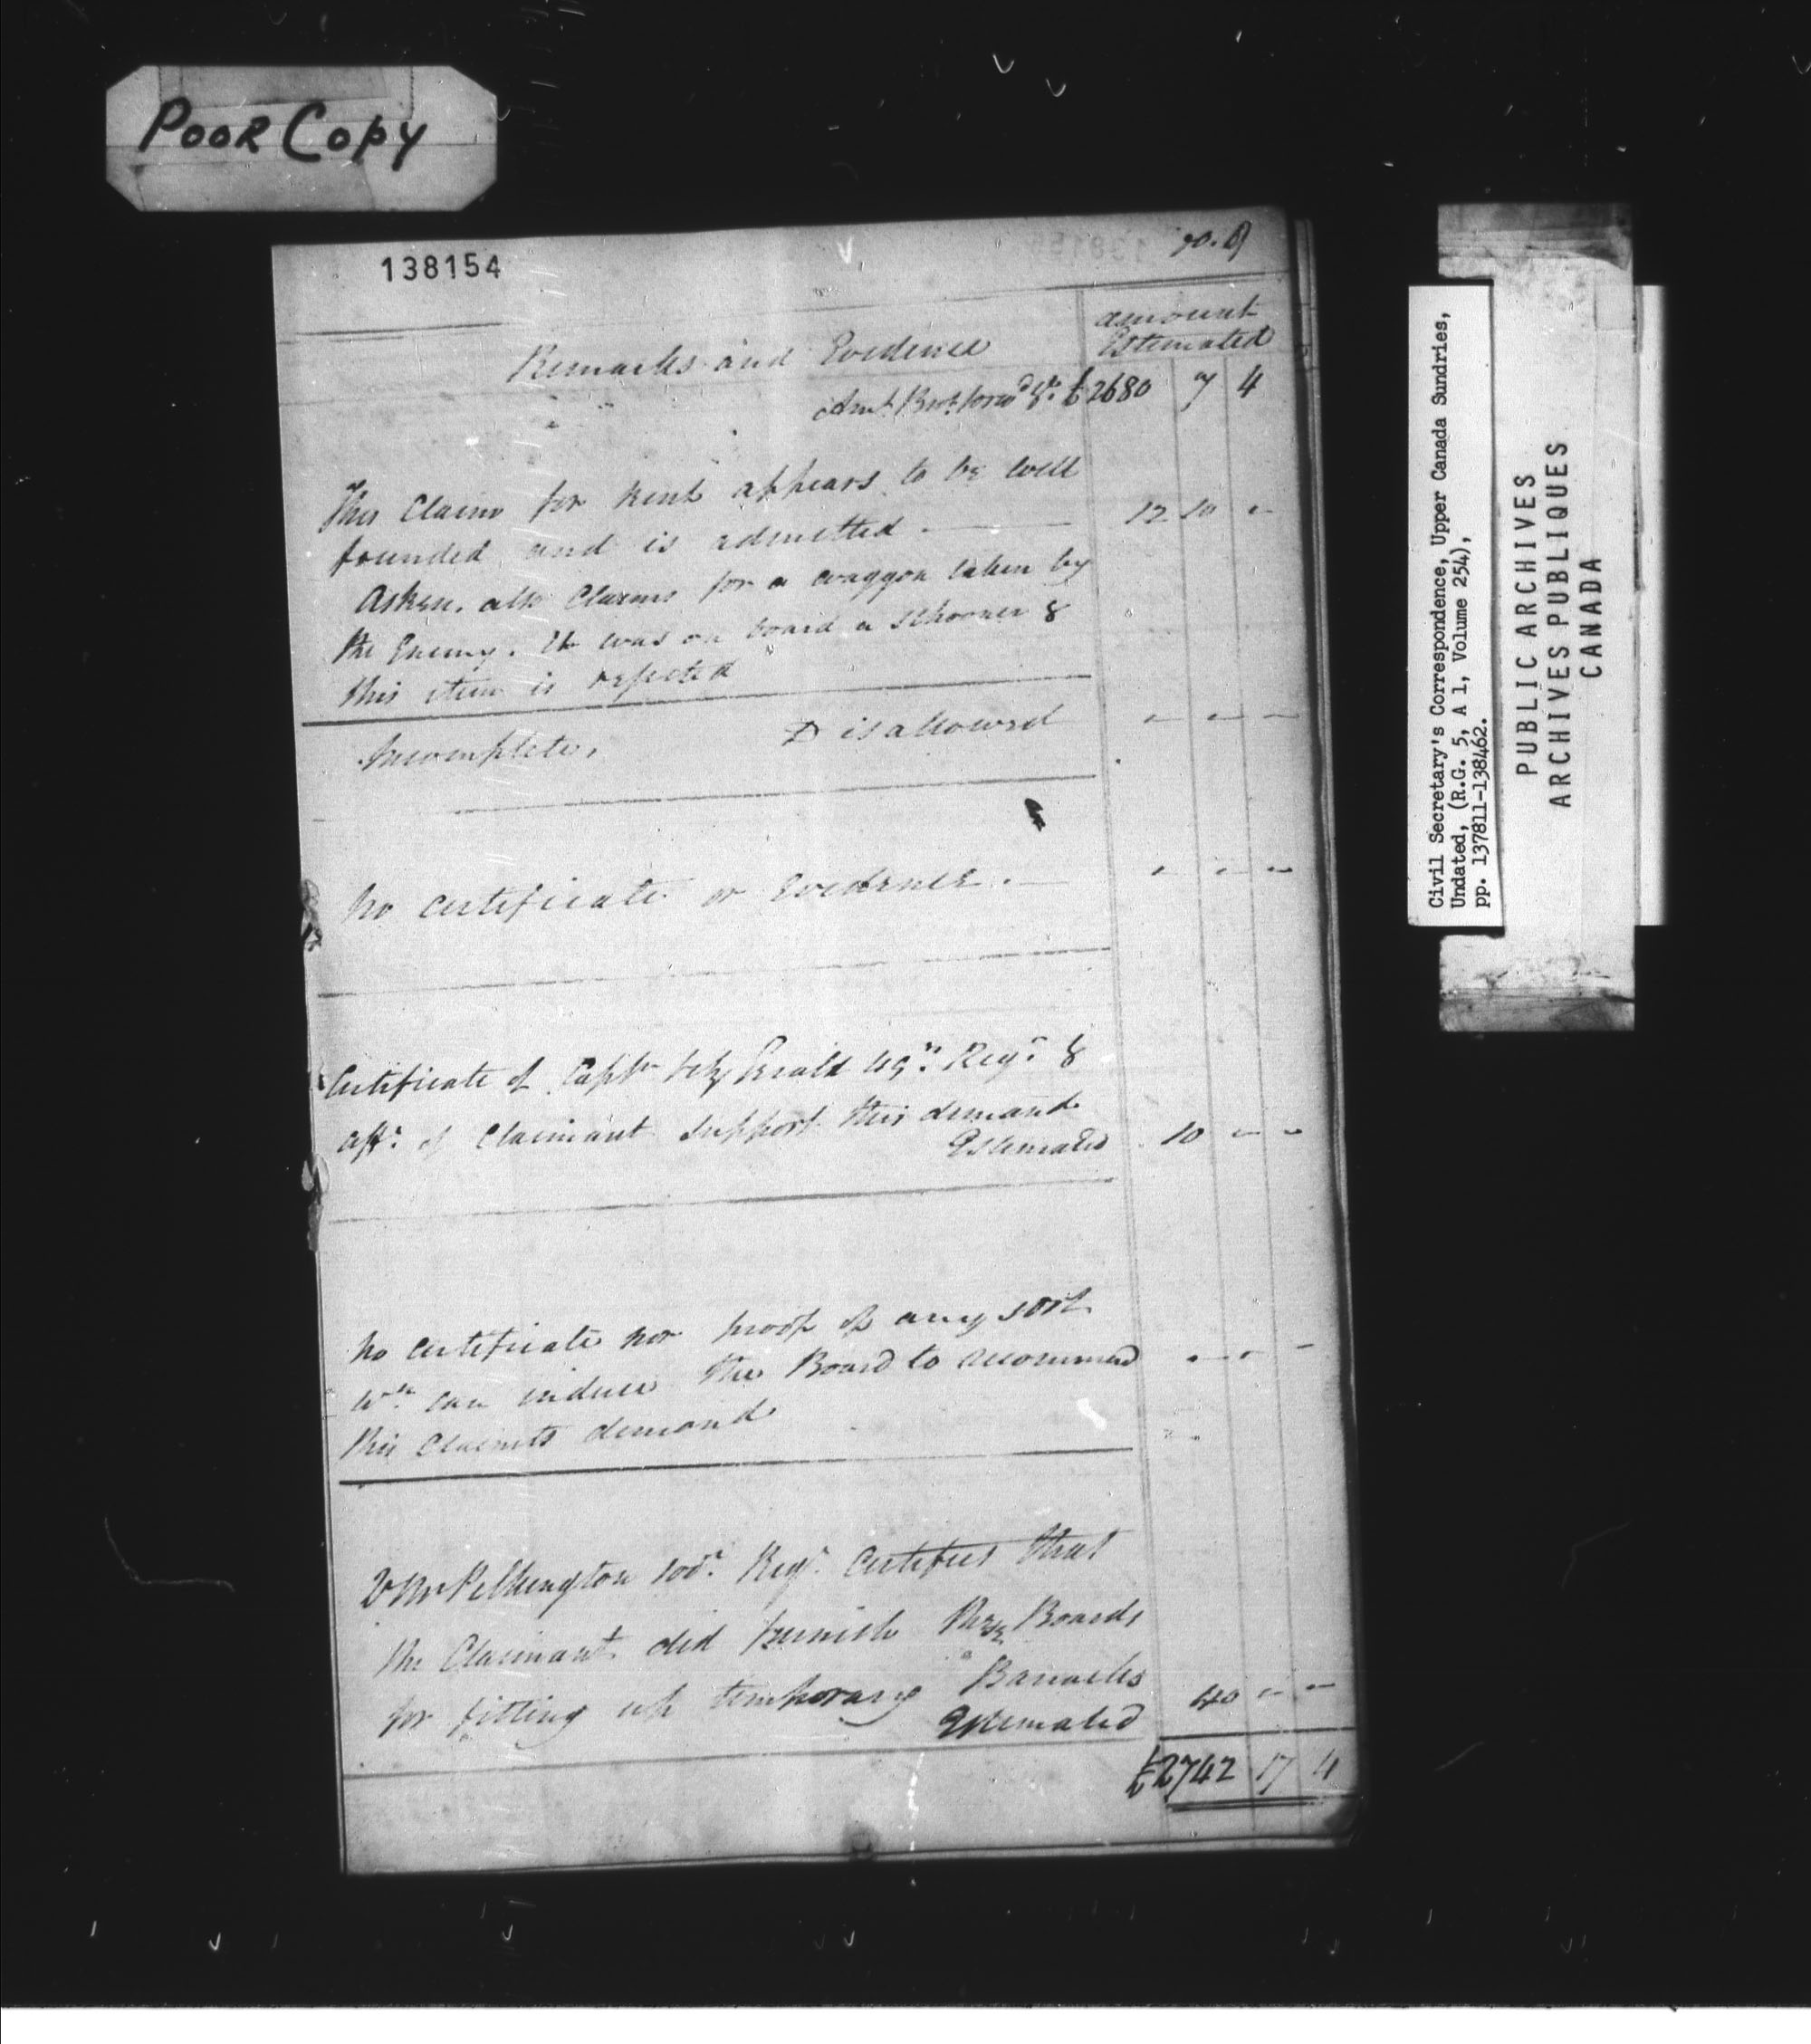 Poor Copy
138154
no. 8
Remarks and Evidence
amount
Estimated
Amt. Brot. forwd. £2680 7 4
This Claim for Rent appears to be well
founded and is admitted — 12 10 -
Askin also Claims for a waggon taken by
the Enemy. It was on board a schooner &
this item is rejected
Incomplete. Disallowed - - -
No certificate or Evidence. — - - -
Certificate of Captn Fitz Gerald 49th Regt &
afft. of Claimant support this demand
Estimated 10 - -
No certificate nor proof of any sort
wch can induce the Board to recommend - - -
this Claimts demand
Pilkington 100th Regt. Certifies that
the Claimant did furnish these Boards
for fitting up temporary Barracks
Estimated 40 - -
£2742 17 4
Civil Secretary's Correspondence, Upper Canada Sundries,
Undated, (R.G. 5, A 1, Volume 254),
pp. 137811-138462.
PUBLIC ARCHIVES
ARCHIVES PUBLIQUES
CANADA